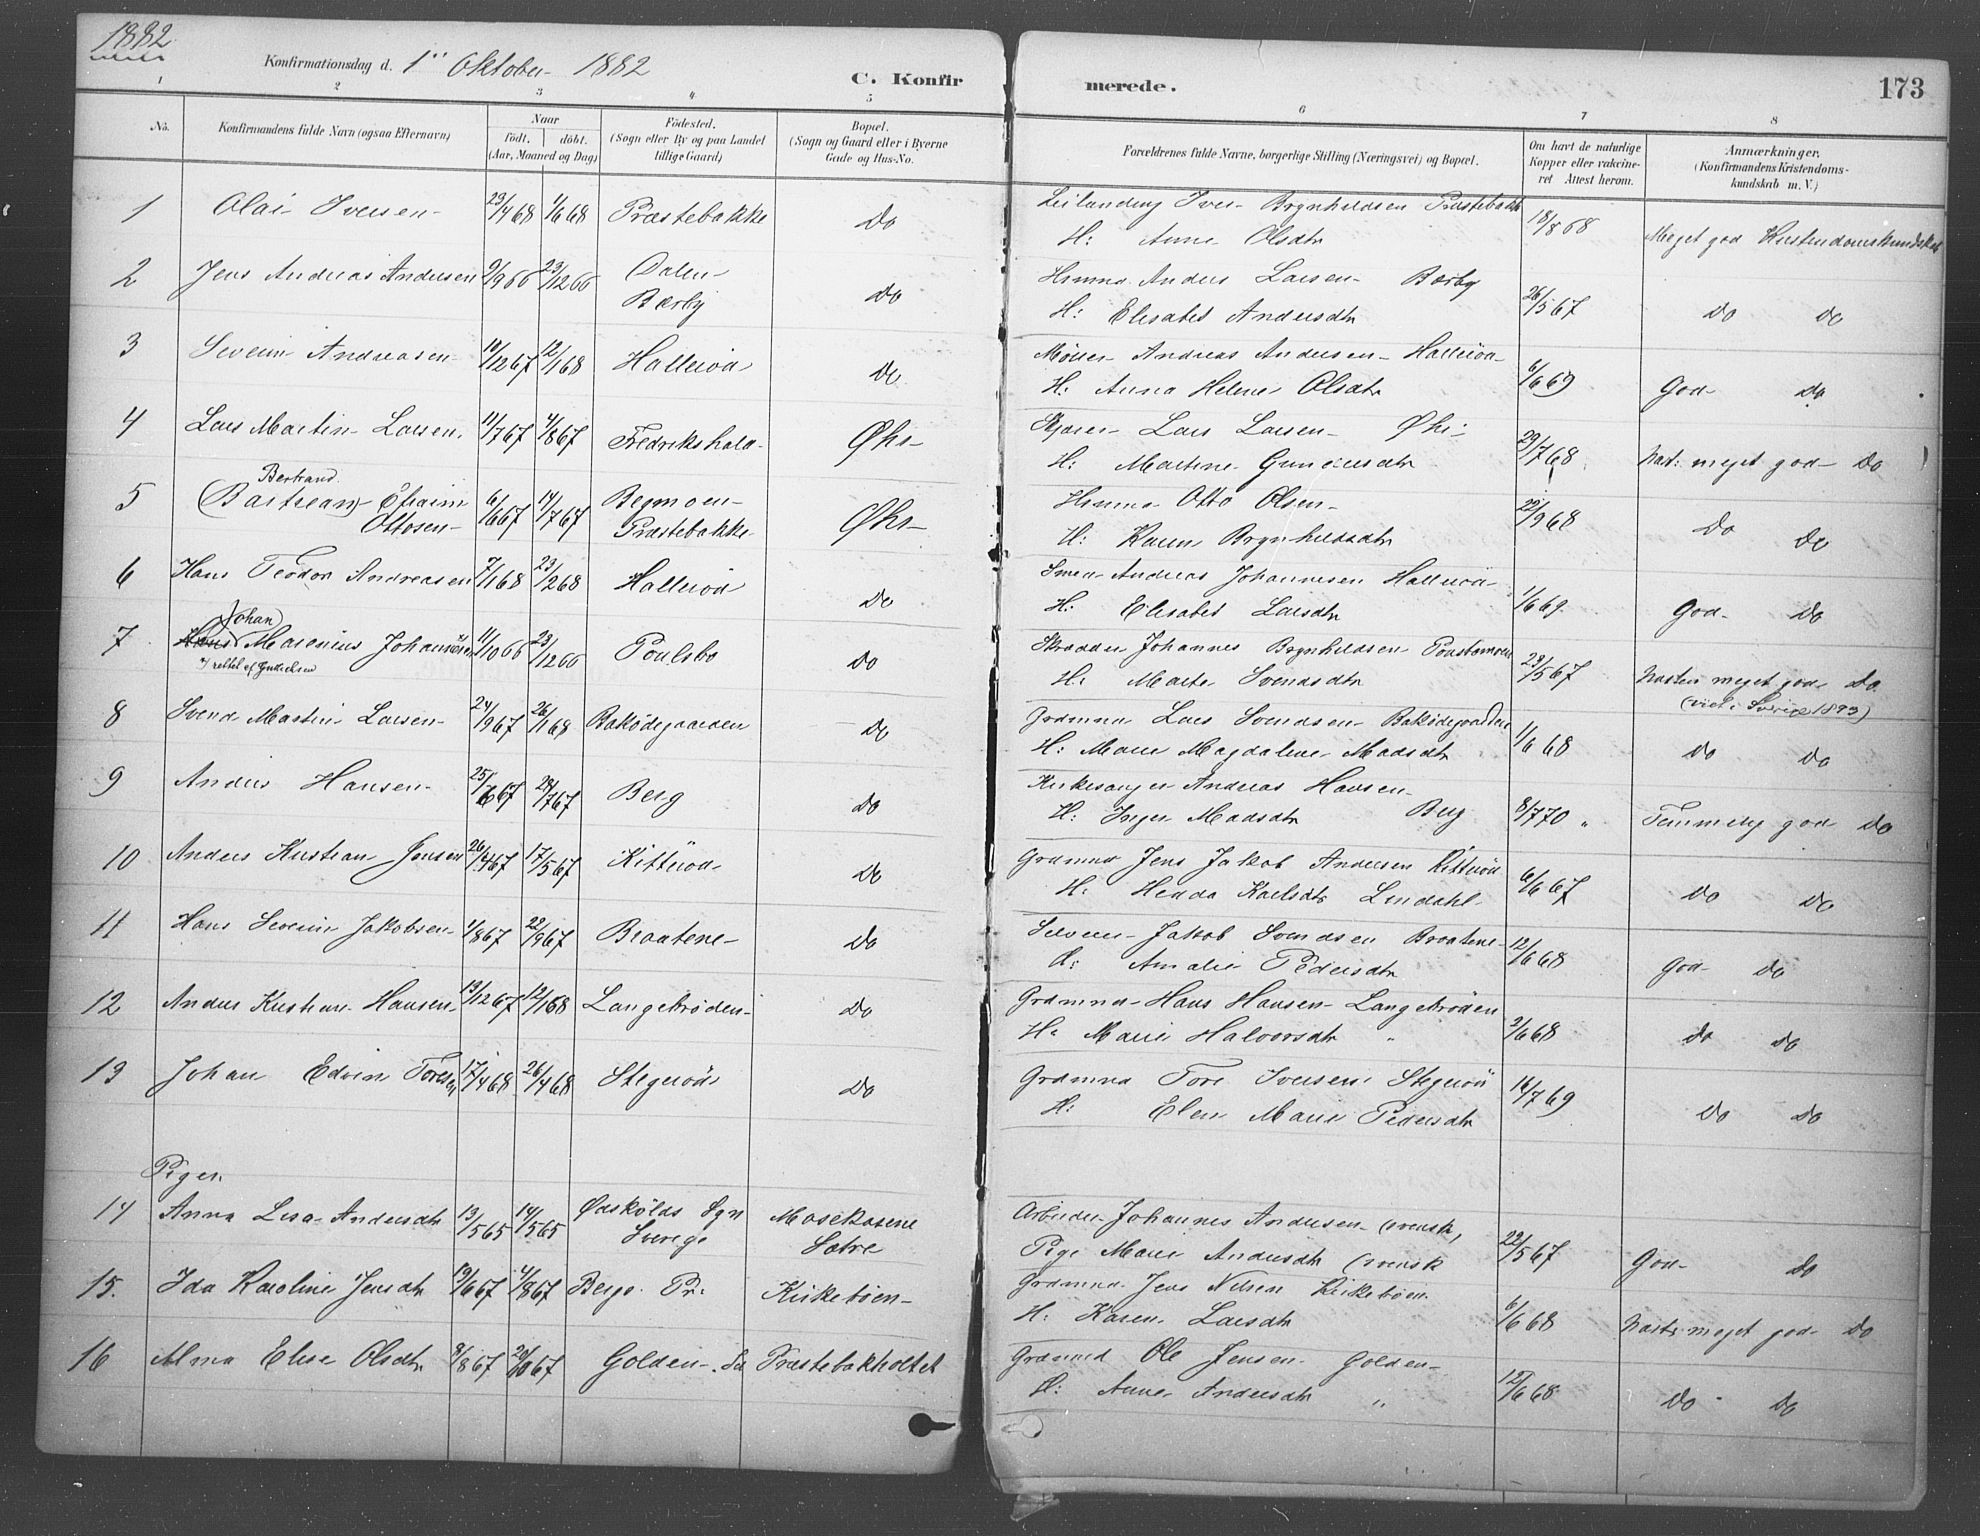 1882
Konfirmationsdag d. 1ste Oktober 1882
C. Konfirmerede.
173
1 2 3 4 5 6 7 8
No.
Konfirmandens fulde Navn (ogsaa Efternavn)
Naar födt. döbt. (Aar, Maaned og Dag)
Födested. (Sogn eller By og paa Landet tillige Gaard)
Bopæl. (Sogn og Gaard eller i Byerne Gade og Hus-No.
Forældrenes fulde Navne, borgerlige Stilling (Næringsvei) og Bopæl.
Om havt de naturlige Kopper eller vakcineret Attest herom.
Anmærkninger. (Konfirmandens Kristendomskundskab m. V.)
1 Olai Iversen 23/4 68 1/6 68 Præstebakke Do Leilænding Iver Brynhildsen Præstebak 18/8 68 Meget god Kristendomskundskab
H: Anne Olsdtr
2 Jens Andreas Andersen 9/9 66 23/12 66 Dalen Do Anders Larsen Bærby 26/5 67 Do Do
Bærby H: Elisabet Andersdtr
3 Severin Andreasen 10/12 67 12/1 68 Hallerød Do Møller Andreas Andersen Hallerød 6/6 69 God Do
H: Anna Helene Olsdtr
4 Lars Martin Larsen 11/7 67 4/8 67 Fredrikshald Øhs Lars Larsen Øhs 29/7 68 Næst: meget god Do
H: Martine
5 Bertrand
(Bartsean) Efraim 6/6 67 14/7 67 Begmoen Øhs Otto Olsen 22/9 68 Do Do
Ottosen Præstebakke H: Karen Brynhildsdtr
6 Hans Teodor Andreasen 7/1 68 23/2 68 Hallerød Do Smed Andreas Johannesen Hallerød 1/6 69 God Do
H: Elisabet Larsdtr
Johan
7 Hans Marenius Johansen 11/10 66 23/12 66 Poulsbo Do Skrædder Johannes Brynhildsen 23/5 67 Næsten meget god Do
H: Marte Svendsdtr (viet i Sverige 1893)
8 Svend Martin Larsen 24/9 67 26/1 68 Bakødegaarden Do Grdmnd Lars Svendsen Bakødegaarden 1/6 68 Do Do
H: Maren Magdalene Madsdtr
9 Anders Hansen 25/6 67 28/7 67 Berg Do Kirkesanger Andreas Hansen 8/7 70 " Temmelig god Do
H: Inger Madsdtr Berg
10 Anders Kristian Jensen 26/4 67 17/5 67 Kitterød Do Grdmnd Jens Jakob Andersen Kitterød 6/6 67 Do Do
H: Hedda Karlsdtr Lindahl
11 Hans Severin Jakobsen 1/8 67 22/9 67 Braatene Do Jakob Svendsen Braatene 12/6 68 God Do
H: Amalie Pedersdtr
12 Anders Kristian Hansen 13/12 67 12/1 68 Langetrøden Do Grdmnd Hans Hansen Langetrøden 3/6 68 Do Do
H: Marie Halvorsdtr "
13 Johan Edvin Toresen 17/4 68 26/4 68 Stegerød Do Grdmnd Tore Iversen Stegerød 14/7 69 Do Do
H: Elen Marie Pedersdtr
Piger.
14 Anna Lisa Andersdtr 13/5 65 14/5 65 Ødskölds Sgn Mosekasene Arbeider Johannes Andersen (svensk) 22/5 67 God Do
Sverige Sætre Pige Marie Andersdtr (svensk
15. Ida Karoline Jensdtr 19/6 67 4/8 67 Bergs Pr: Kirkebøen Grdmnd Jens Nilsen Kirkebøen 6/6 68 Næst: meget god Do
H: Karen Larsdtr
16 Alma Elise Olsdtr 8/8 67 20/10 67 Golden Præstebakholtet Grdmnd Ole Jensen Golden 12/6 68 Do Do
H: Anne Andersdtr "